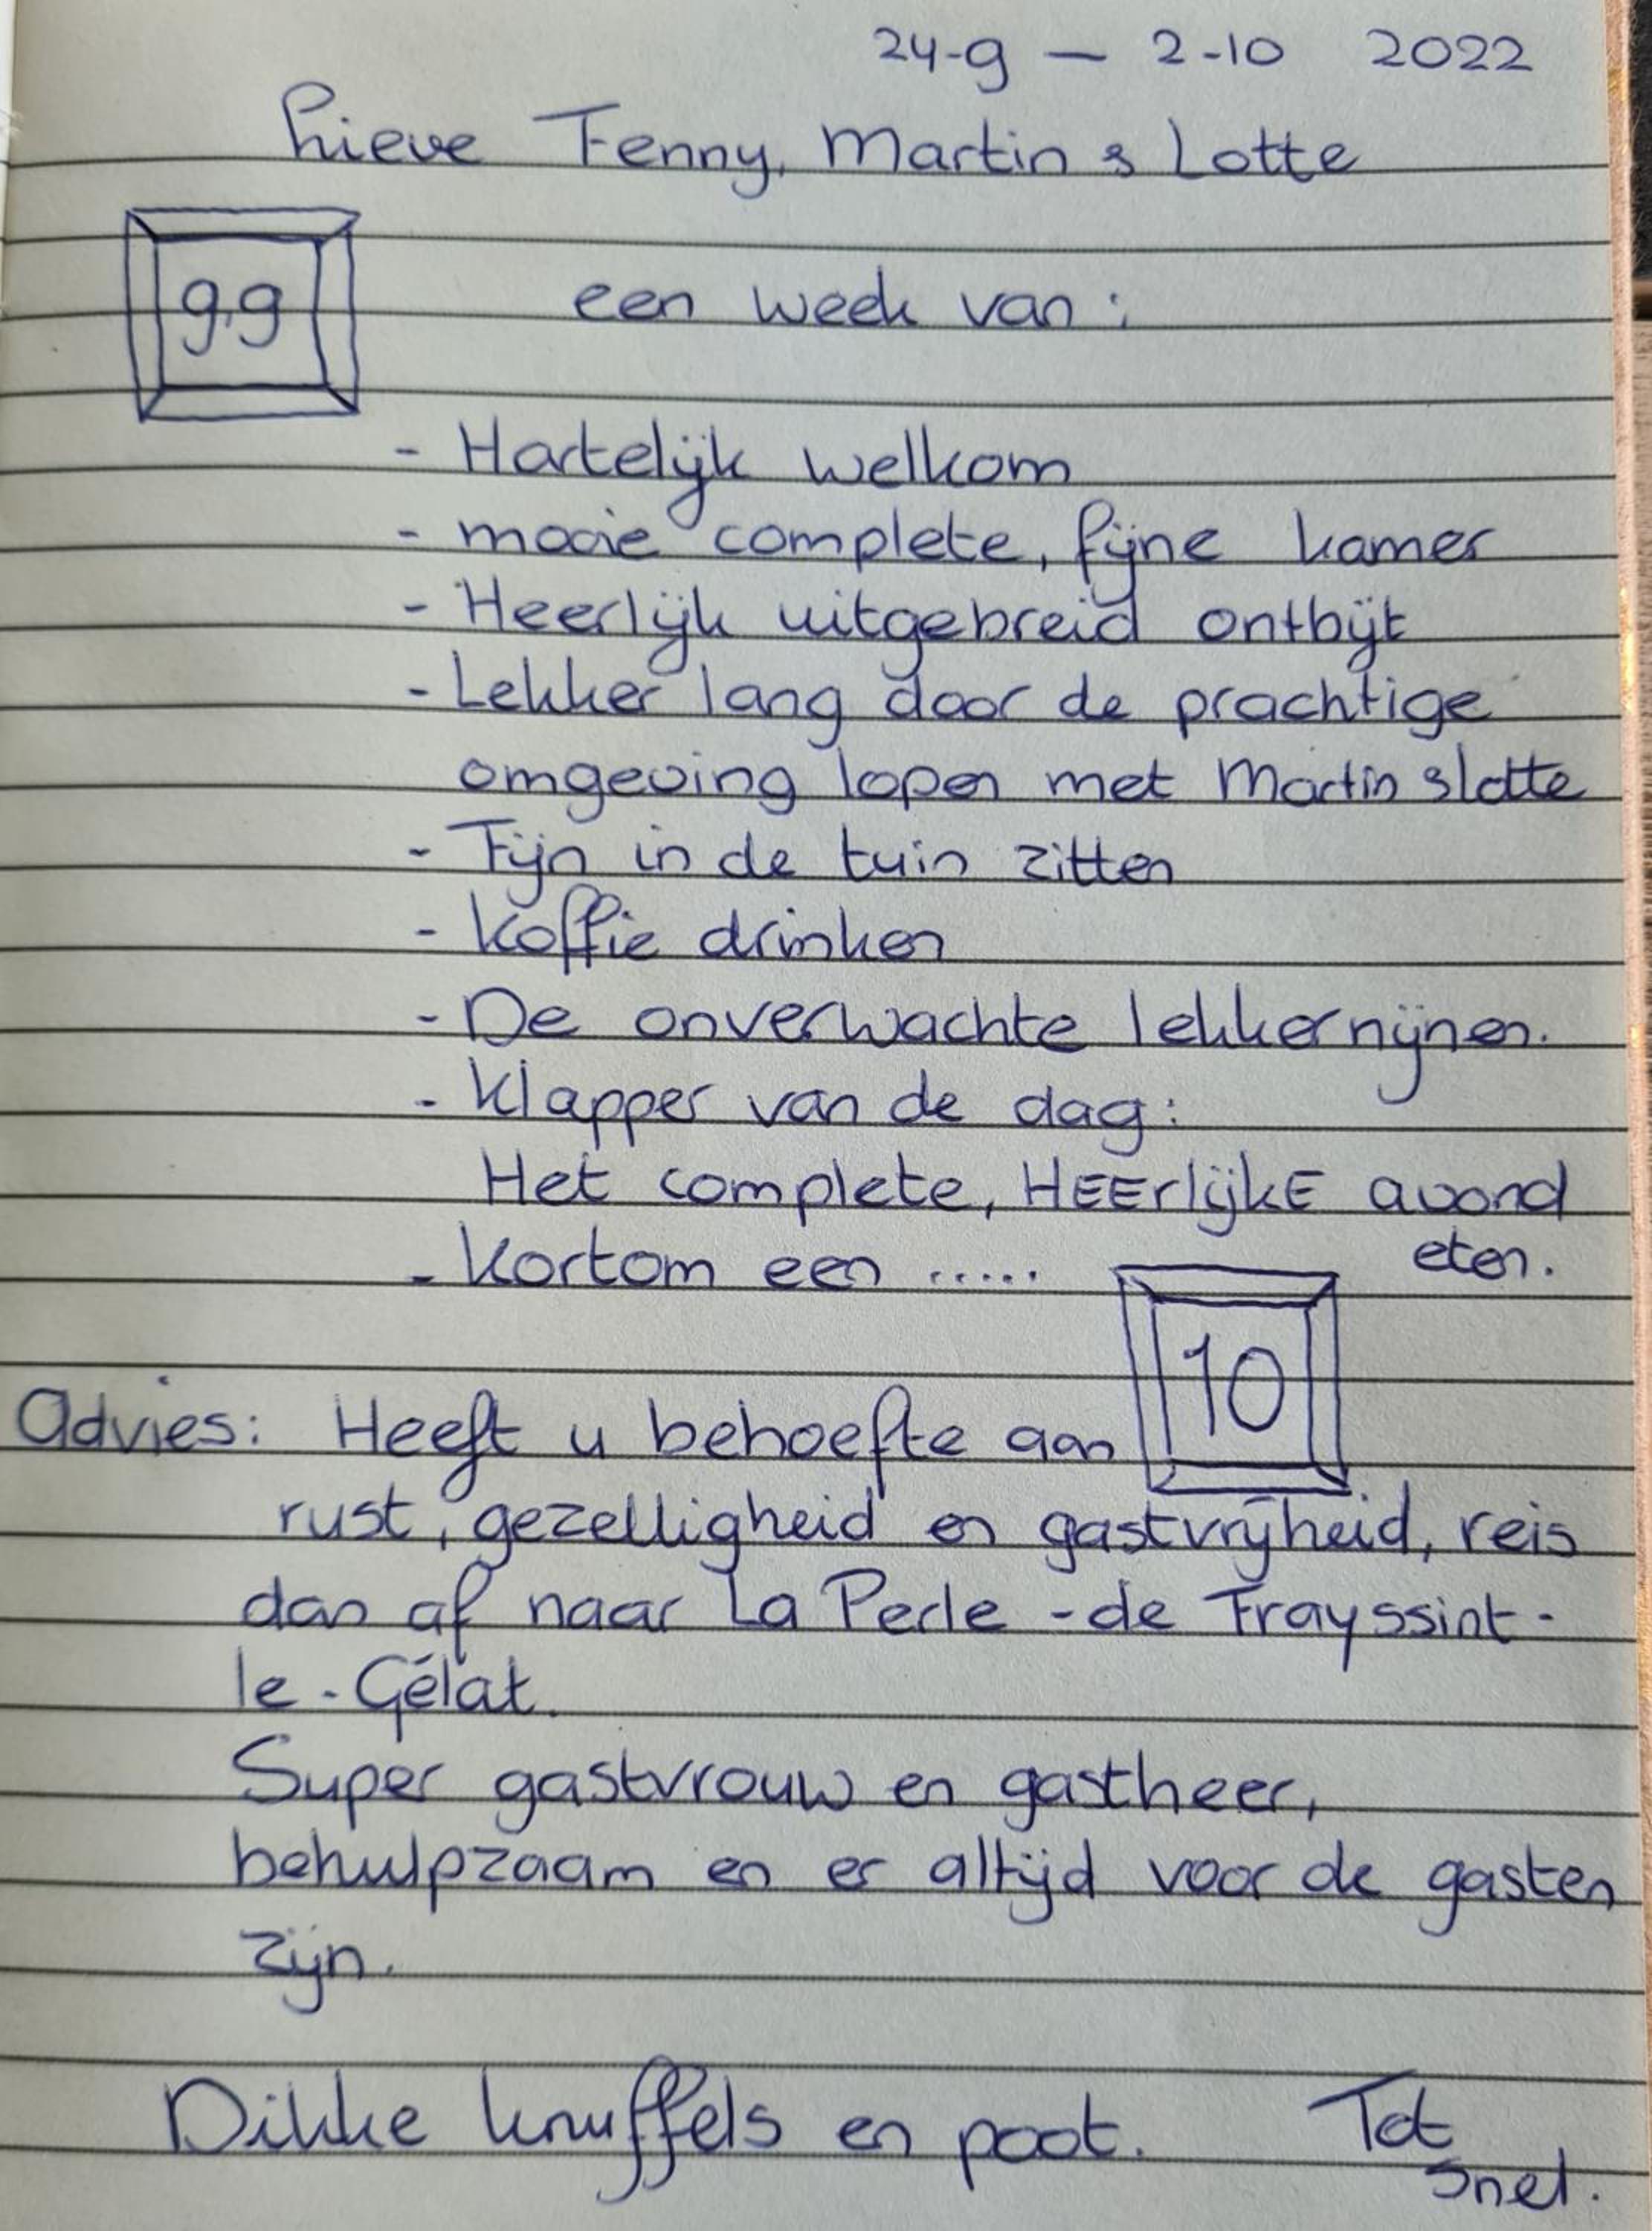 24-9 — 2-10 2022
Lieve Fenny, Martin & Lotte
9,9
een week van:
- Hartelijk welkom
- mooie complete, fijne kamer
- Heerlijk uitgebreid ontbijt
- Lekker lang door de prachtige
omgeving lopen met Martin & Lotte
- Fijn in de tuin zitten
- Koffie drinken
- De onverwachte lekkernijnen.
- Klapper van de dag:
Het complete, HEErlijkE avond
eten.
- Kortom een .....
10
Advies: Heeft u behoefte aan
rust, gezelligheid en gastvrijheid, reis
dan af naar La Perle - de Frayssint -
le - Gélat.
Super gastvrouw en gastheer,
behulpzaam en er altijd voor de gasten
zijn.
Dikke knuffels en poot. Tot
snel.